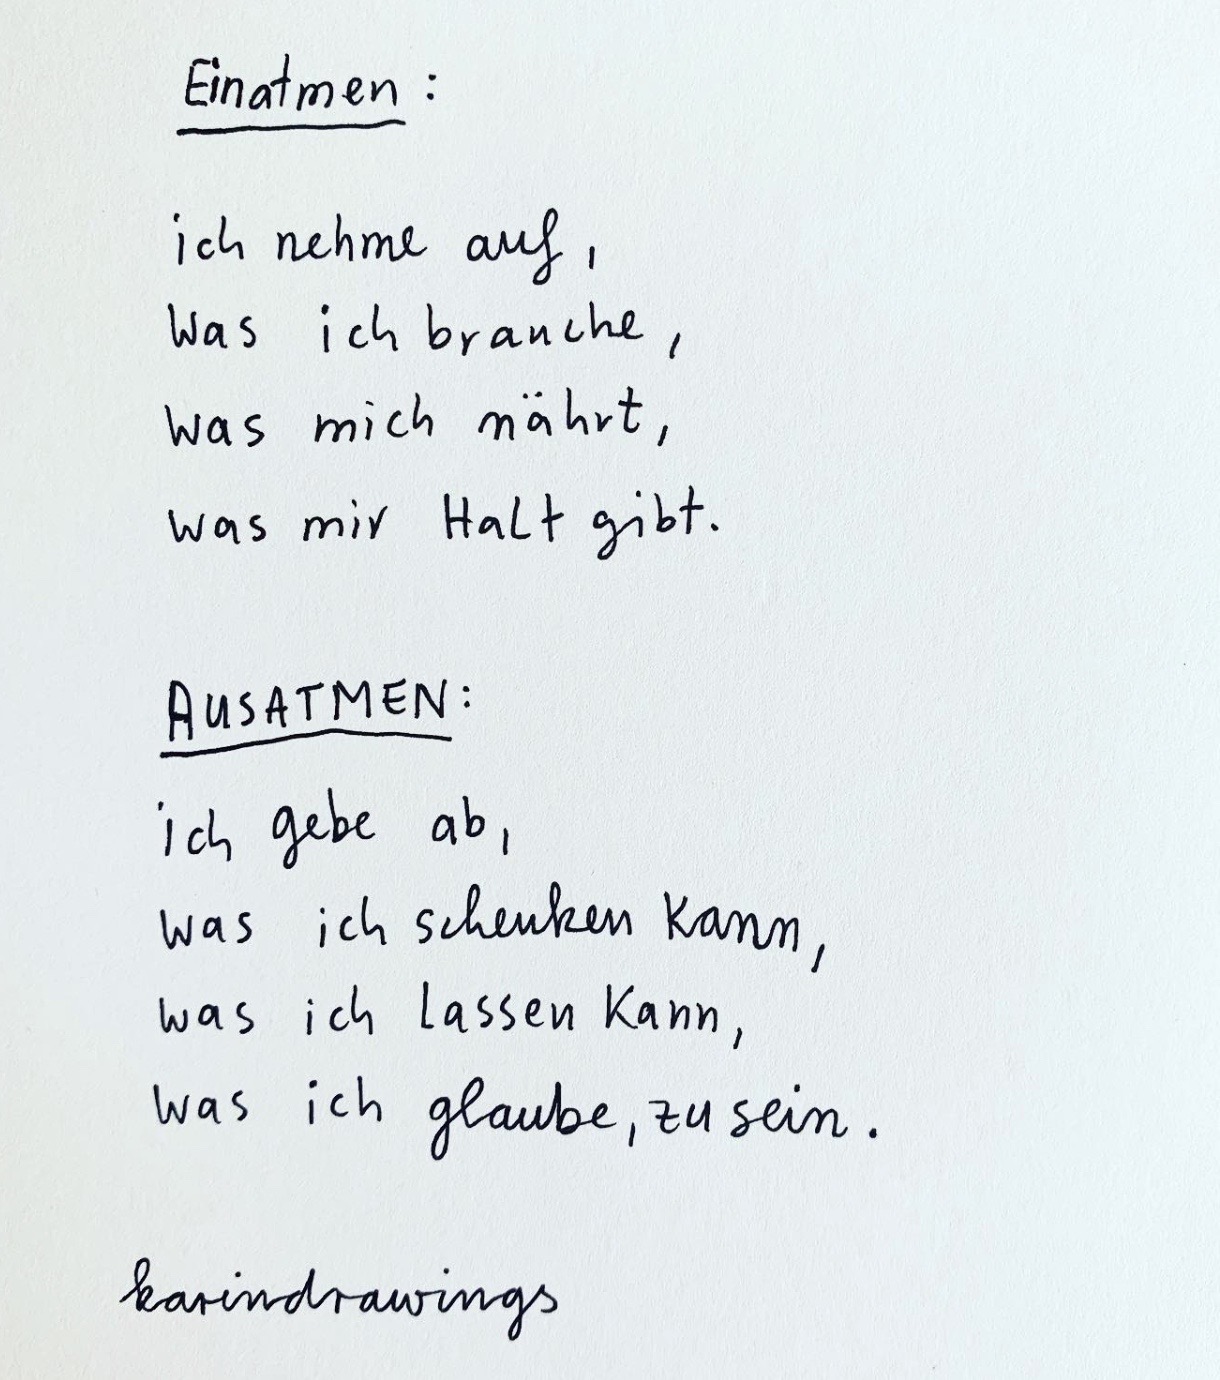 Einatmen:
ich nehme auf,
Was ich brauche,
was mich nährt,
was mir Halt gibt.
AUSATMEN:
ich gebe ab,
was ich schenken kann,
was ich lassen kann,
was ich glaube, zu sein.
karindrawings